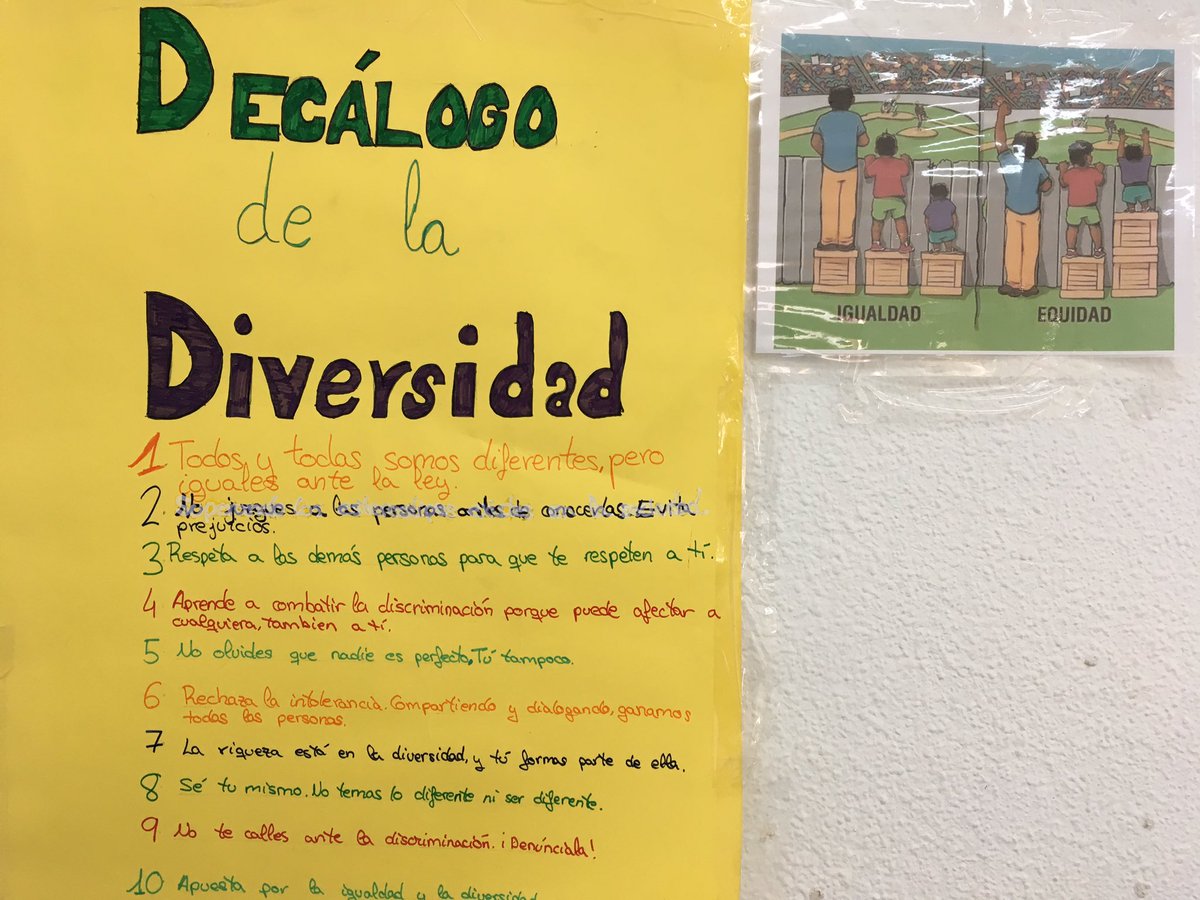 DECÁLOGO
de la
Diversidad
1 Todos y todas somos diferentes, pero
iguales ante la ley.
2. No juzgues a las personas antes de conocerlas. Evita
prejuicios.
3 Respeta a las demás personas para que te respeten a tí.
4 Aprende a combatir la discriminación porque puede afectar a
cualquiera, tambien a tí.
5 No olvides que nadie es perfecto, Tú tampoco.
6 Rechaza la intolerancia. Compartiendo y dialogando, ganamos
todas las personas.
7 La riqueza está en la diversidad, y tú formas parte de ella.
8 Sé tu mismo. No temas lo diferente ni ser diferente.
9 No te calles ante la discriminación. ¡Denúnciala!
10 Apuesta por la igualdad y la diversidad
IGUALDAD
EQUIDAD